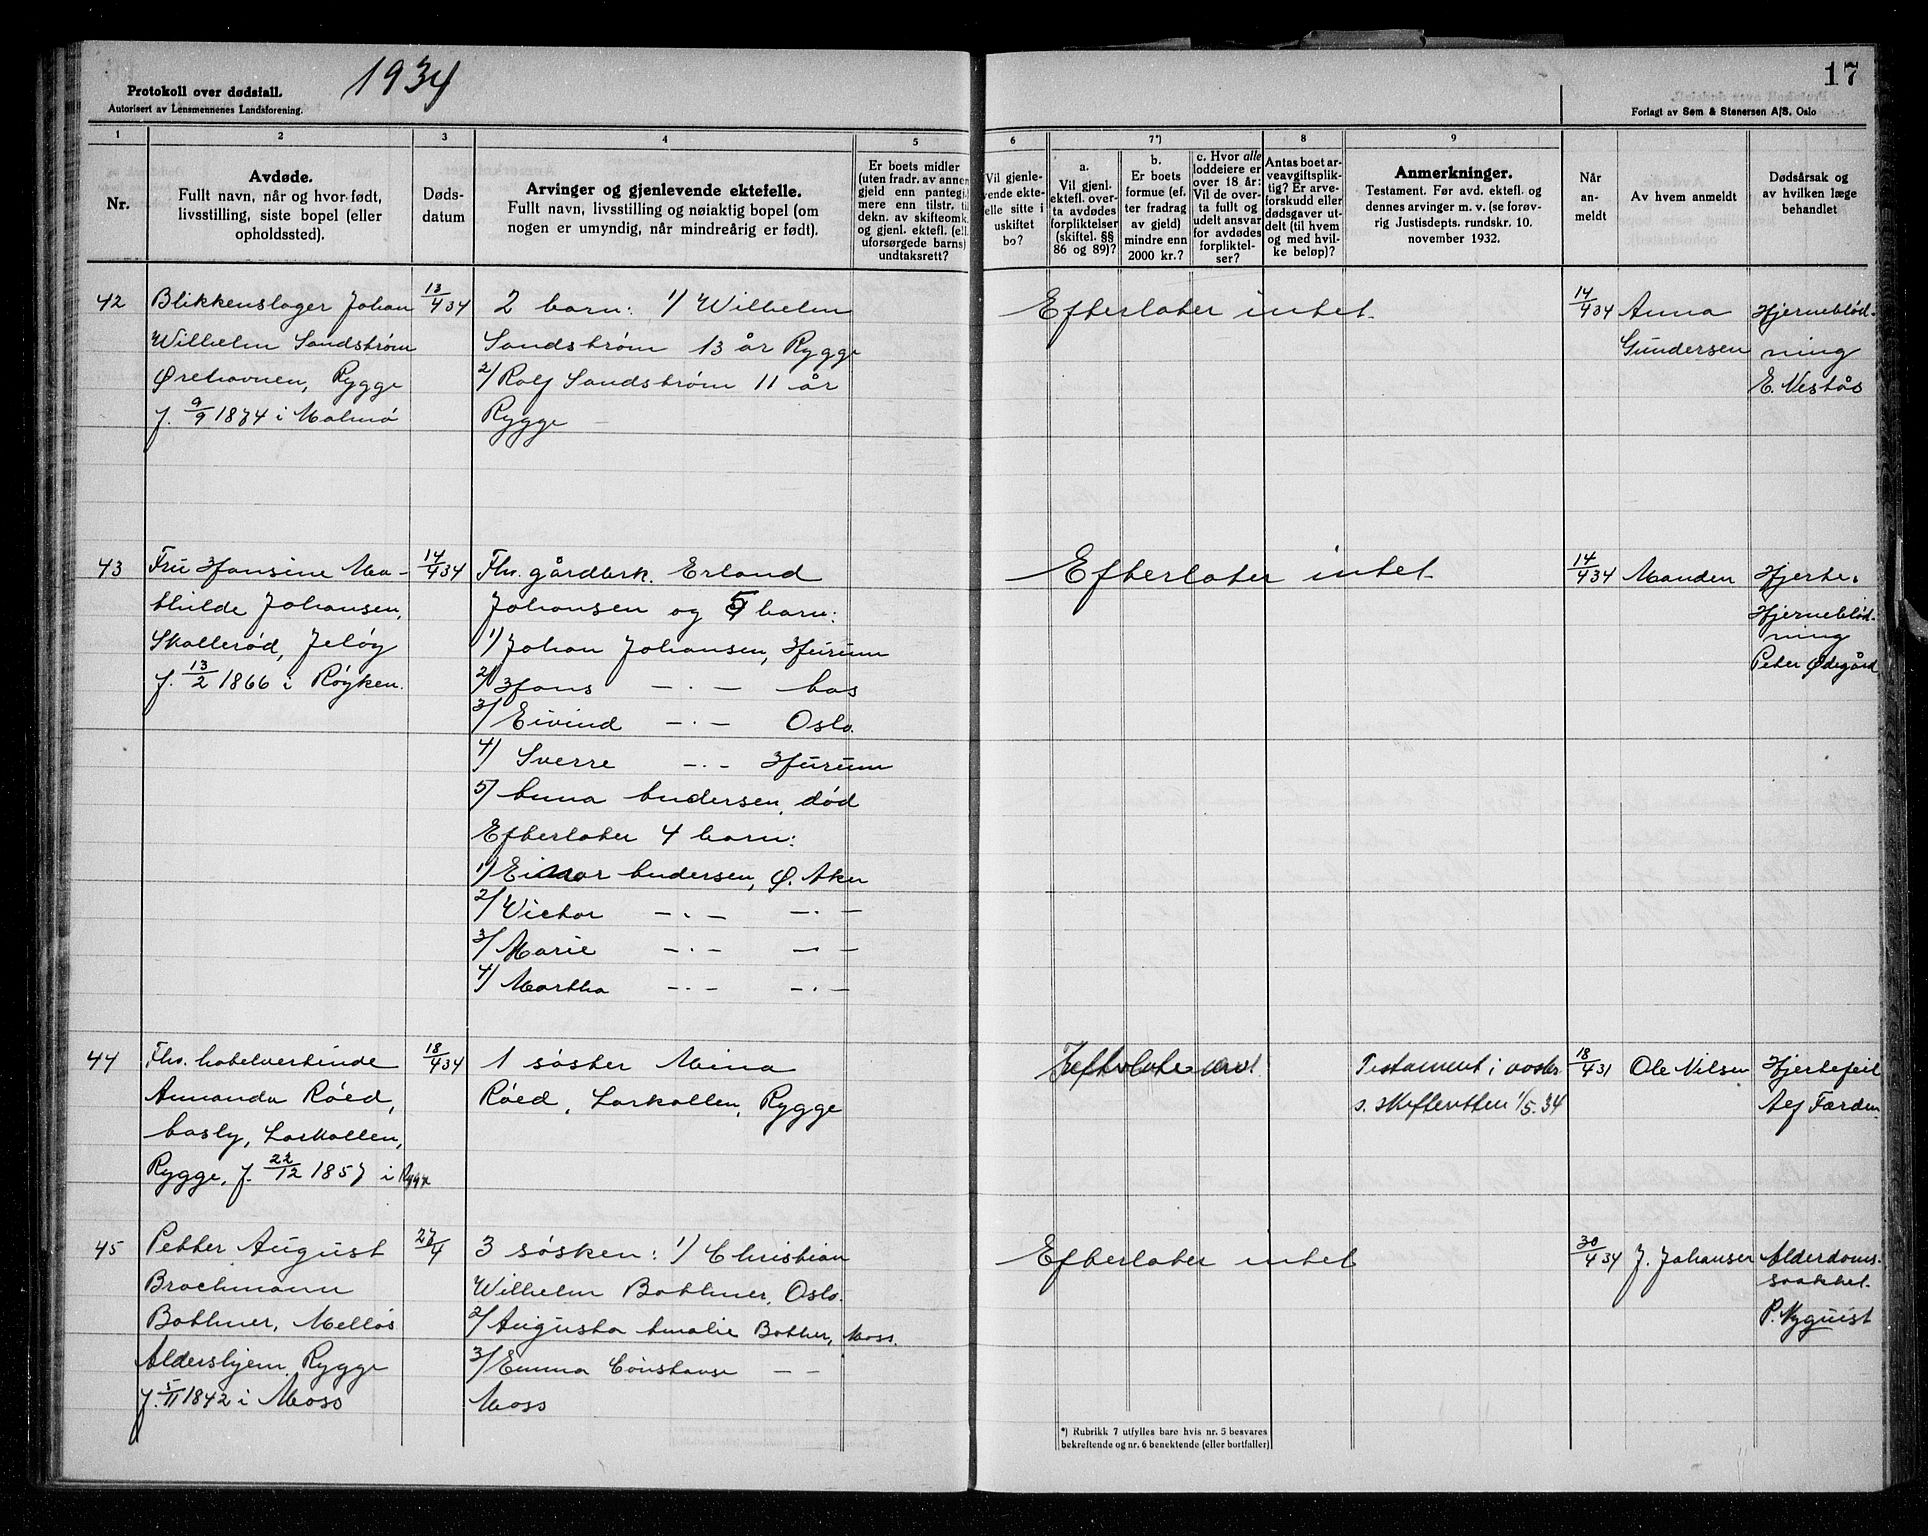 1934
17
Protokoll over dødsfall.
Autorisert av Lensmennenes Landsforening.
Forlagt av Søm & Stenersen A/S. Oslo
1
2
3
4
5
6
7*)
8
9
Nr.
Avdøde.
Fullt navn, når og hvor født,
livsstilling, siste bopel (eller
opholdssted).
Døds-
datum
Arvinger og gjenlevende ektefelle.
Fullt navn, livsstilling og nøiaktig bopel (om
nogen er umyndig, når mindreårig er født).
Er boets midler
(uten fradr. av annen
gjeld enn pantegj
mere enn tilstr. ti
dekn. av skifteomk.
og gjenl. ektefl. (el.
uforsørgede barns)
undtaksrett?
Vil gjenle-
vende ekte-
elle sitte i
uskiftet
bo?
a.
Vil gjenl.
ektefl. over-
ta avdødes
forpliktelser
(skiftel. §§
86 og 89)?
b.
Er boets
formue (ef.
ter fradrag
av gjeld)
mindre enn
2000 kr.?
c. Hvor alle
loddeiere er
over 18 år:
Vil de over-
ta fullt og
udelt ansvar
for avdødes
forpliktel-
ser?
Antas boet ar-
veavgiftsplik-
tig? Er arve-
forskudd eller
dødsgaver ut-
delt (til hvem
og med hvil-
ke beløp)?
Anmerkninger.
Testament. Før avd. ektefl. og
dennes arvinger m. v. (se forøv-
rig Justisdepts. rundskr. 10.
november 1932.
Når
an-
meldt
Av hvem anmeldt
Dødsårsak og
av hvilken læge
behandlet
42
Blikkenslager Johan
Wilhelm Sandstrøm
Ørehavnen, Rygge
f. 9/9 1874 i Malmø
13/4 34
2 barn: 1/ Wilhelm
Sandstrøm 13 år Rygge
2/ Rolf Sandstrøm 11 år
Rygge
Efterlater intet
14/4 34
Anna
Gundersen
Hjerneblød-
ning
E. Nestås
43
Fru Hansine Ma-
thilde Johansen,
Skallerød, Jeløy
f. 13/2 1866 i Røyken.
14/4 34
Fhv. gårdbrk. Erland
Johansen og 5 barn:
1/ Johan Johansen, Hurum
2/ Hans — . — bas
3/ Eivind — . — Oslo.
4/ Sverre — . — Hurum
5/ Anna Andersen, død
Efterlater 4 barn:
1/ Einar Andersen, Ø. Aker
2/ Victor — . — — . —
3/ Marie — . — — . —
4/ Martha — . — — . —
Efterlater intet
14/4 34
Manden
Hjerte.
Hjerneblød-
ning
Peter Ødegård
44
Fhv. hotelvertinde
Amanda Röed,
Larkollen,
Rygge, f. 22/12 1857 i Rygge
18/4 34
1 søster Mina
Röed, Larkollen, Rygge
Testament i
s. skifteretten 1/5. 34
18/4 31
Ole Nilsen
Hjertefeil
Alf Færden
45
Petter August
Brochmann
Bothner, Melløs
Aldershjem, Rygge
f. 5/11 1842 i Moss
27/4
3 søsken: 1/ Christian
Wilhelm Bothner, Oslo.
2/ Augusta Amalie Bothner, Moss.
3/ Emma Constanse — —
Moss
Efterlater intet
30/4 34
J. Johansen
Alderdoms-
svakhet.
P. Nyquist
*) Rubrikk 7 utfylles bare hvis nr. 5 besvares
bekreftende og nr. 6 benektende (eller bortfaller)